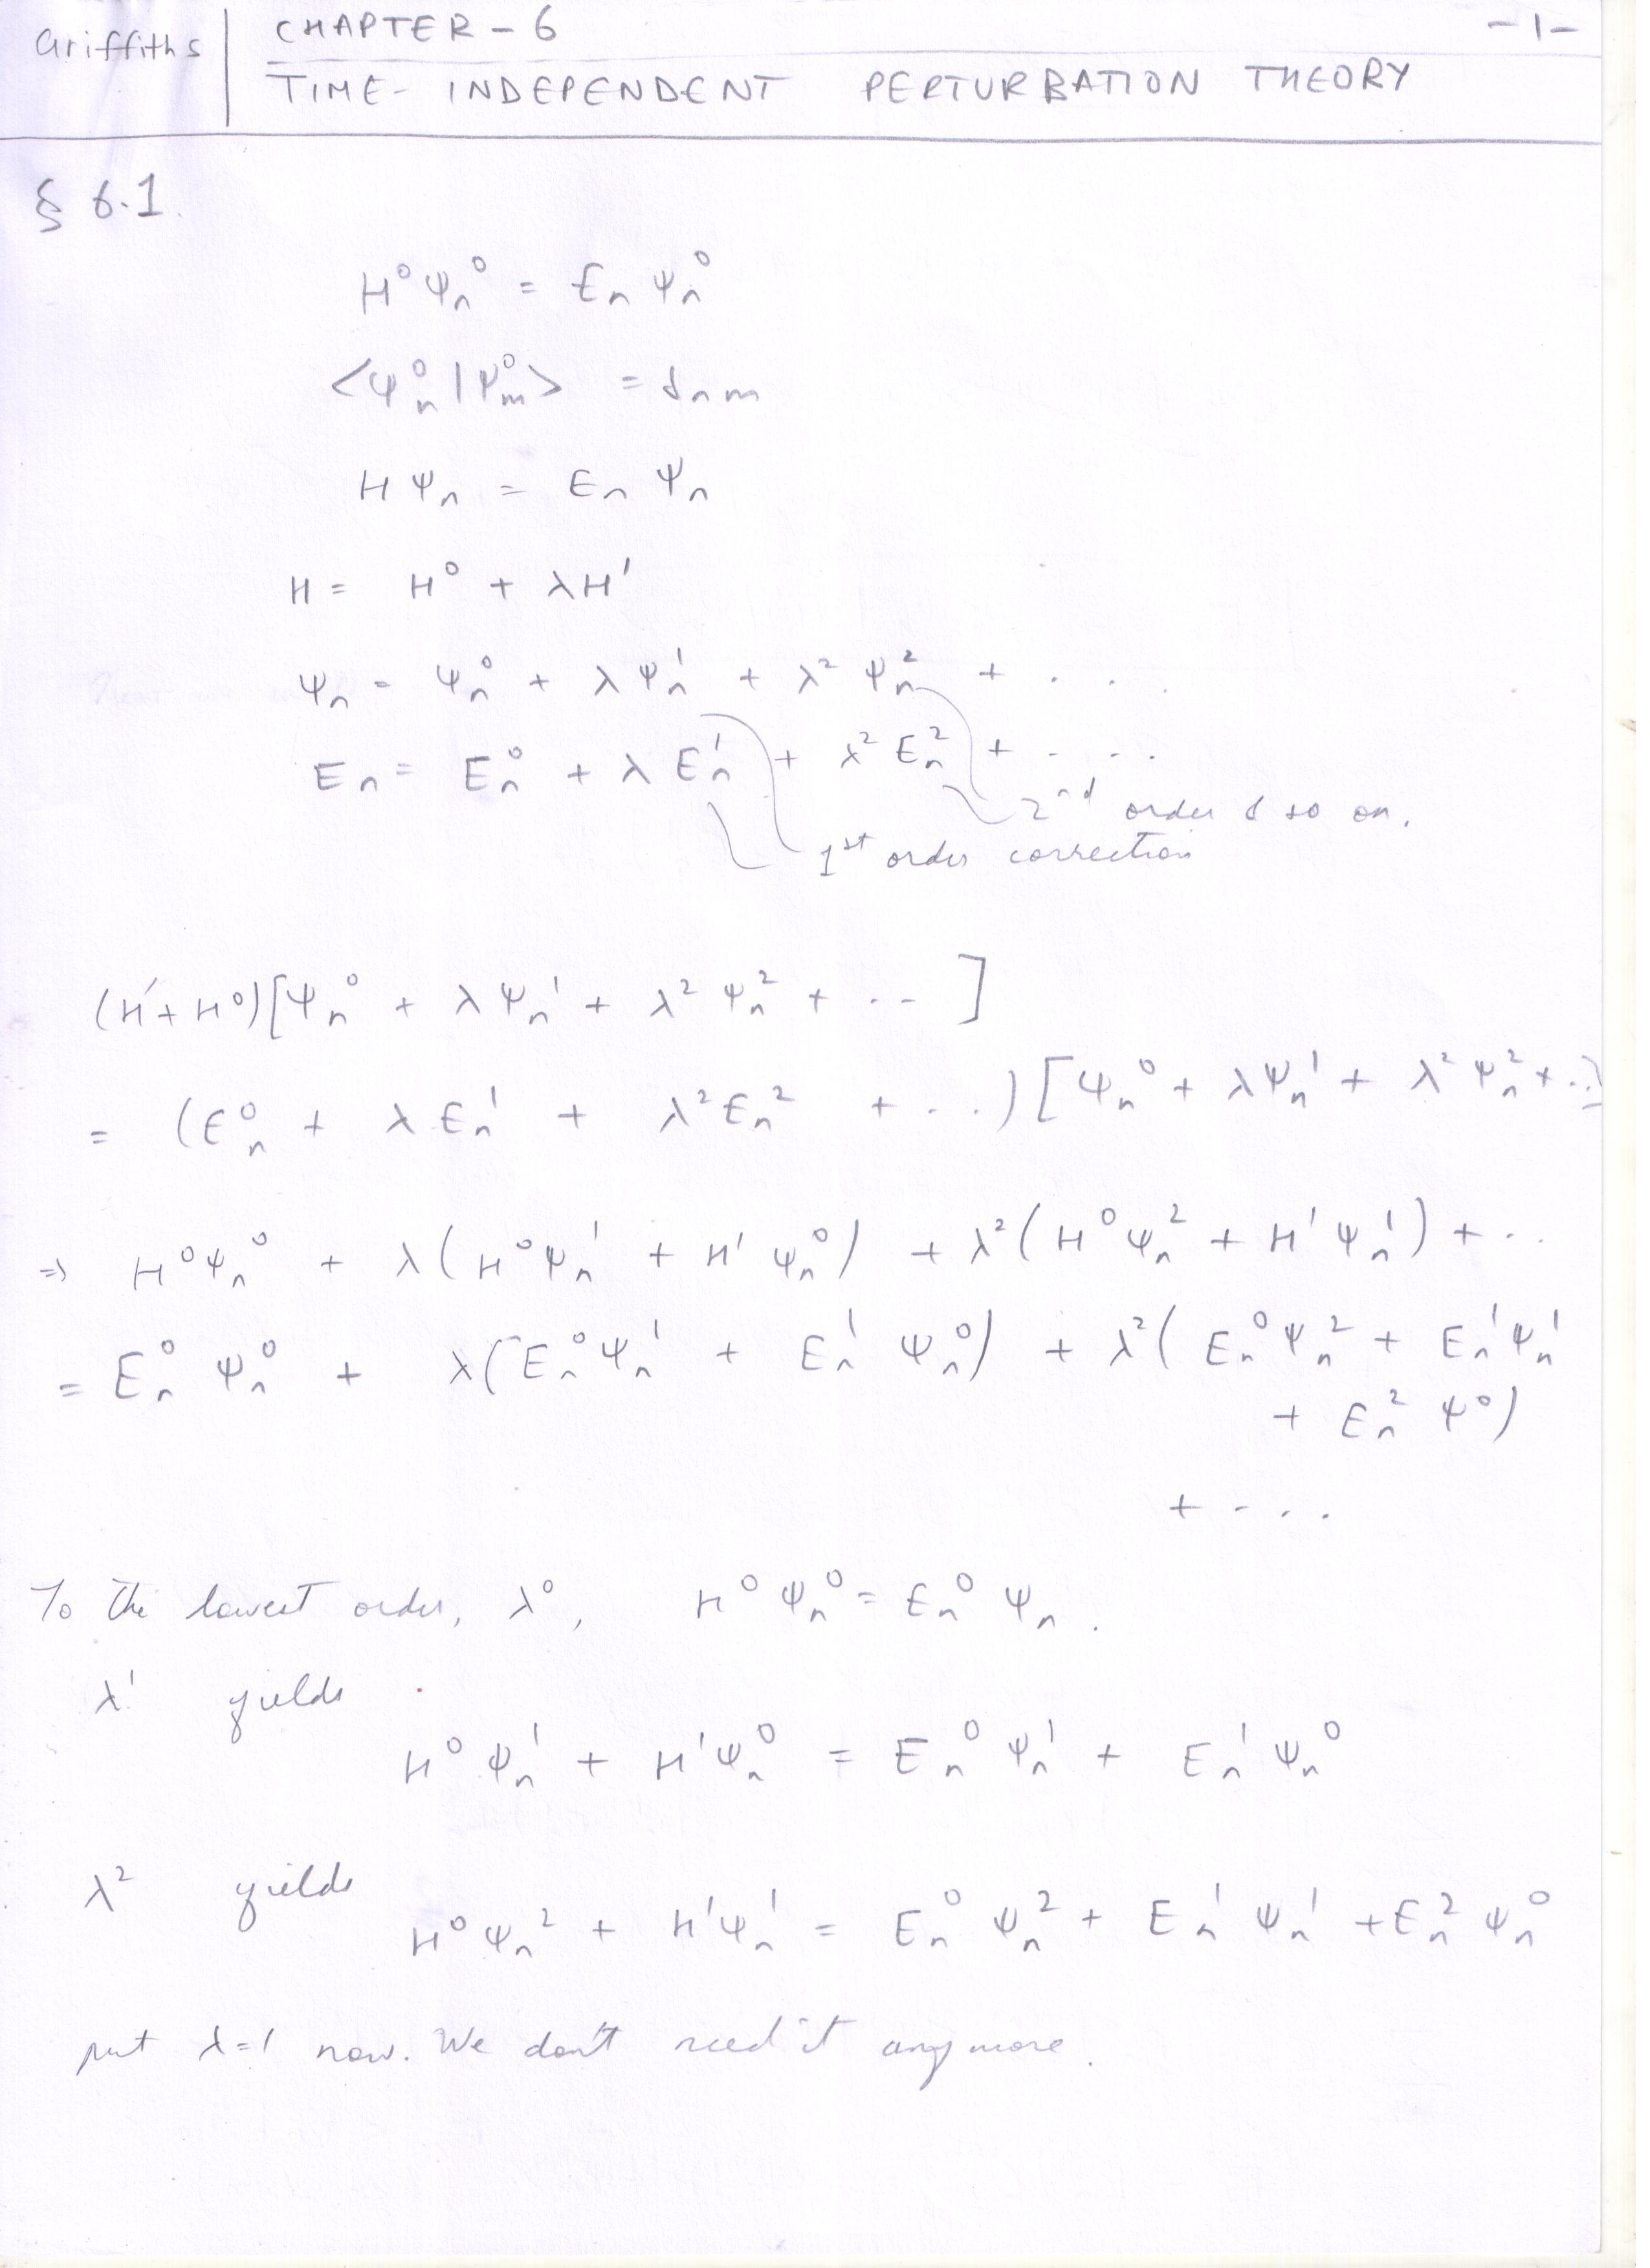 Griffiths
CHAPTER - 6
-1-
TIME- INDEPENDENT PERTURBATION THEORY
§ 6.1.
H⁰ψₙ⁰ = Eₙ ψₙ⁰
<ψₙ⁰|ψₘ⁰> = δₙₘ
H ψₙ = Eₙ ψₙ
H = H⁰ + λH'
ψₙ = ψₙ⁰ + λψₙ¹ + λ²ψₙ² + . . .
Eₙ = Eₙ⁰ + λEₙ¹ + λ²Eₙ² + . . .
2nd order & so on.
1st order correction
(H' + H⁰)[ψₙ⁰ + λψₙ¹ + λ²ψₙ² + ...]
= (Eₙ⁰ + λEₙ¹ + λ²Eₙ² + ...)[ψₙ⁰ + λψₙ¹ + λ²ψₙ² + ..]
⇒ H⁰ψₙ⁰ + λ(H⁰ψₙ¹ + H'ψₙ⁰) + λ²(H⁰ψₙ² + H'ψₙ¹) + ...
= Eₙ⁰ψₙ⁰ + λ(Eₙ⁰ψₙ¹ + Eₙ¹ψₙ⁰) + λ²(Eₙ⁰ψₙ² + Eₙ¹ψₙ¹
+ Eₙ²ψ⁰)
+ ....
To the lowest order, λ⁰, H⁰ψₙ⁰ = Eₙ⁰ψₙ.
λ¹ yields
H⁰ψₙ¹ + H'ψₙ⁰ = Eₙ⁰ψₙ¹ + Eₙ¹ψₙ⁰
λ² yields
H⁰ψₙ² + H'ψₙ¹ = Eₙ⁰ψₙ² + Eₙ¹ψₙ¹ + Eₙ²ψₙ⁰
put λ=1 now. We don't need it anymore.